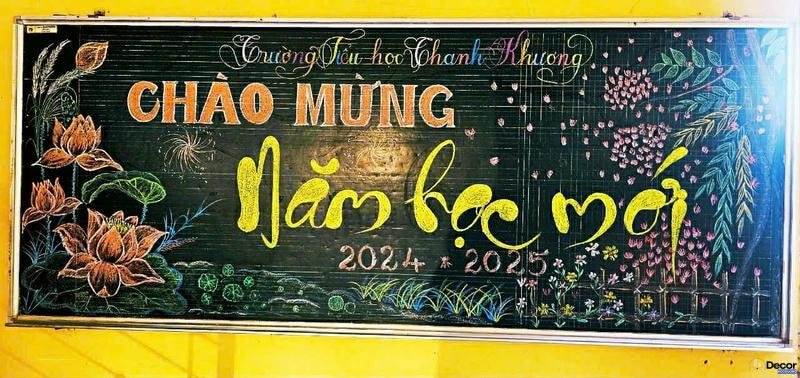 Trường Tiểu học Thanh Khương
CHÀO MỪNG
Năm học mới
2024 * 2025
Decor